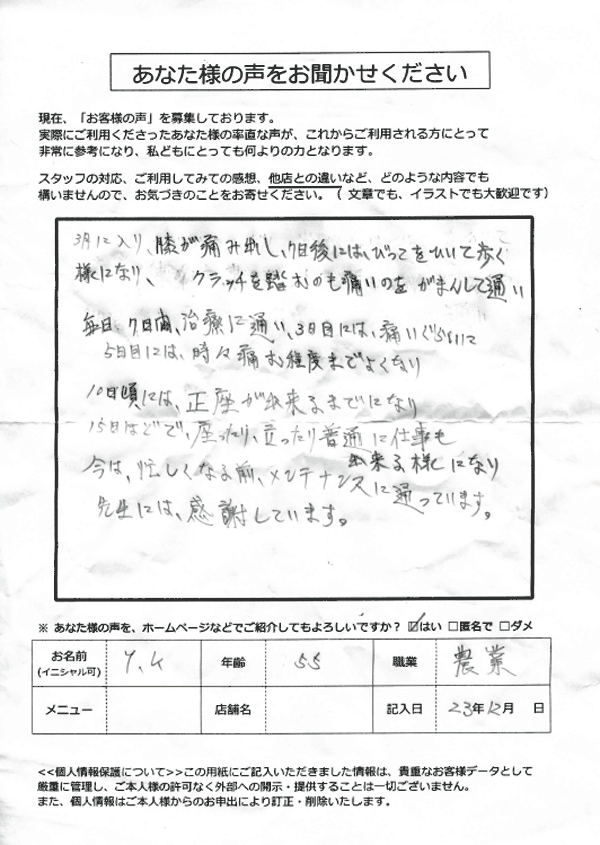 あなた様の声をお聞かせください
現在、「お客様の声」を募集しております。
実際にご利用くださったあなた様の率直な声が、これからご利用される方にとって
非常に参考になり、私どもにとっても何よりの力となります。
スタッフの対応、ご利用してみての感想、他店との違いなど、どのような内容でも
構いませんので、お気づきのことをお寄せください。（ 文章でも、イラストでも大歓迎です）
3月に入り、膝が痛み出し、7日後には、びっこをひいて歩く
様になり、クラッチを踏むのも痛いのを がまんして通い
毎日、7日間、治療に通い、3日目には、痛いぐらいに
5日目には、時々痛む程度までよくなり
10日頃には、正座が出来るまでになり
15日ほどで、座ったり、立ったり普通に仕事も
出来る様になり
今は、忙しくなる前、メンテナンスに通っています。
先生には、感謝しています。
※ あなた様の声を、ホームページなどでご紹介してもよろしいですか？ ☑はい □匿名で □ダメ
お名前 (イニシャル可) Y.K 年齢 55 職業 農業
メニュー 店舗名 記入日 23年12月 日
<<個人情報保護について>>この用紙にご記入いただきました情報は、貴重なお客様データとして
厳重に管理し、ご本人様の許可なく外部への開示・提供することは一切ございません。
また、個人情報はご本人様からのお申出により訂正・削除いたします。